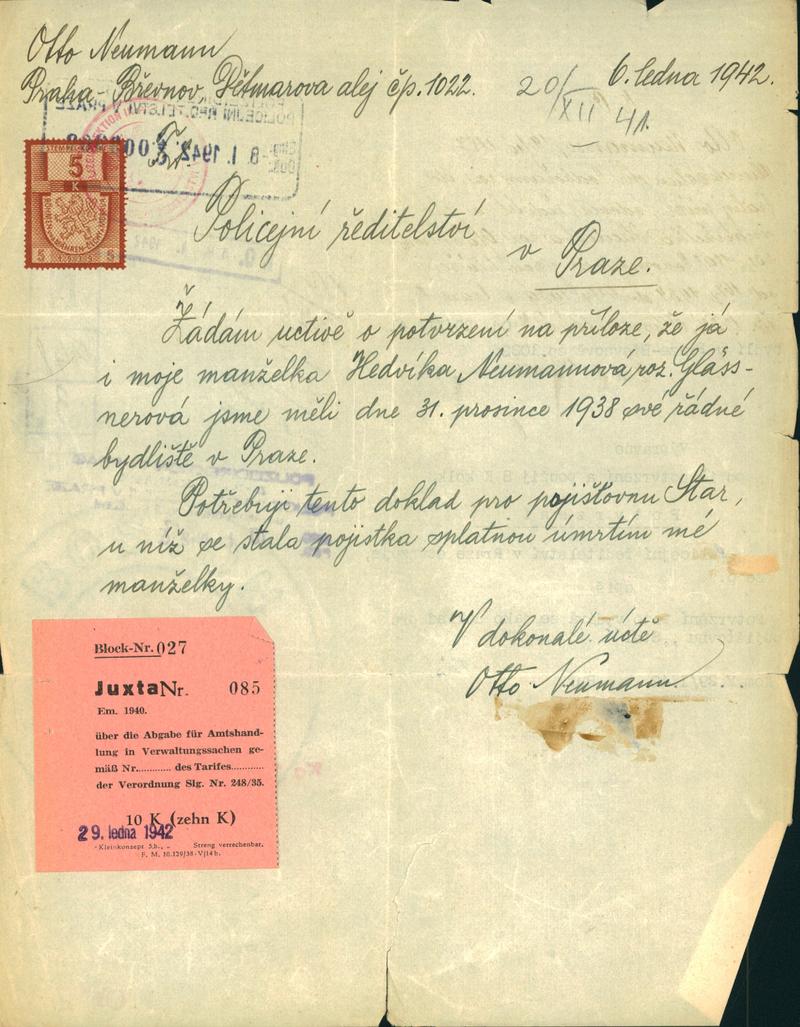 Otto Neumann
Praha-Břevnov, Dětmarova alej čp. 1022.
6. ledna 1942.
20/XII 41.
STEMPELMARKE
5
K
BÖHMEN-MÄHREN
5 5
8. I. 1942
Policejní ředitelství
v Praze.
Žádám uctivě o potvrzení na příloze, že já
i moje manželka Hedvika Neumannová, roz. Gläss-
nerová jsme měli dne 31. prosince 1938 své řádné
bydliště v Praze.
Potřebuji tento doklad pro pojišťovnu Star,
u níž se stala pojistka splatnou úmrtím mé
manželky.
V dokonalé úctě
Otto Neumann
Block-Nr. 027
Juxta Nr. 085
Em. 1940.
über die Abgabe für Amtshand-
lung in Verwaltungssachen ge-
mäß Nr........... des Tarifes...........
der Verordnung Slg. Nr. 248/35.
10 K (zehn K)
29. ledna 1942
Streng verrechenbar.